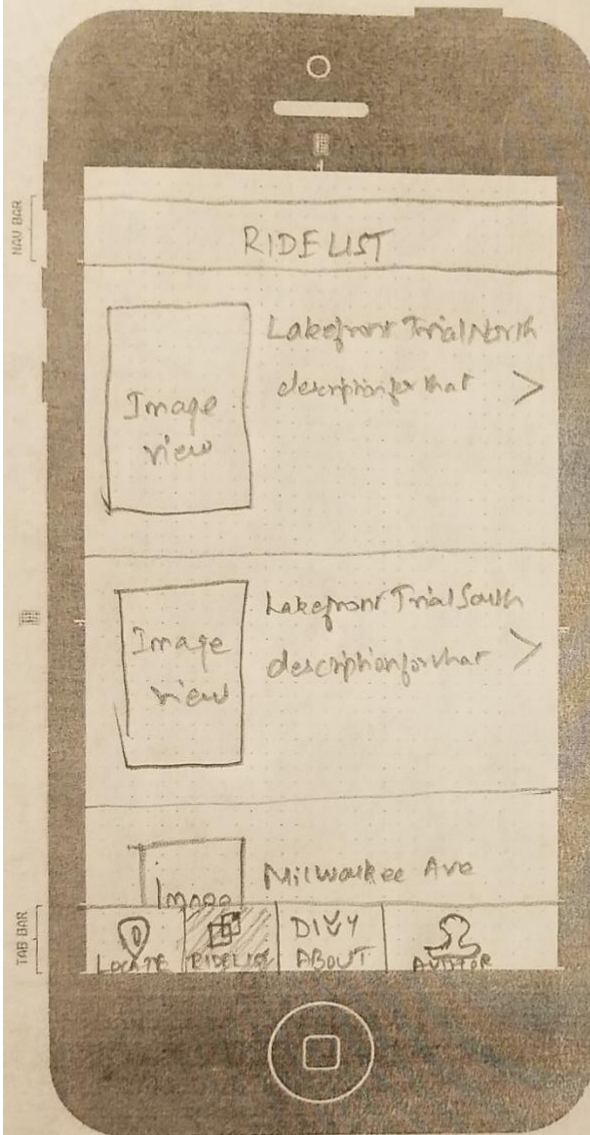 NAV BAR
RIDELIST
Lakefront Trial North
description for that >
Image
view
Lakefront Trial South
description for that >
Image
view
Milwaukee Ave
Image
TAB BAR
LOCATE
RIDELIST
DIVVY
ABOUT